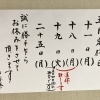 十一日(月)
十八日(月)
十九日(火)
二十五日(月)
誠に勝手ながら
お休みさせて
頂きます